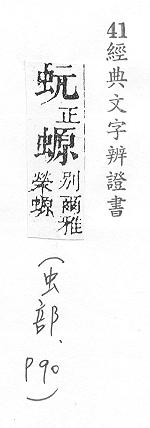 41經典文字辨證書
蚖正螈別爾雅
榮螈
(虫部、P90)